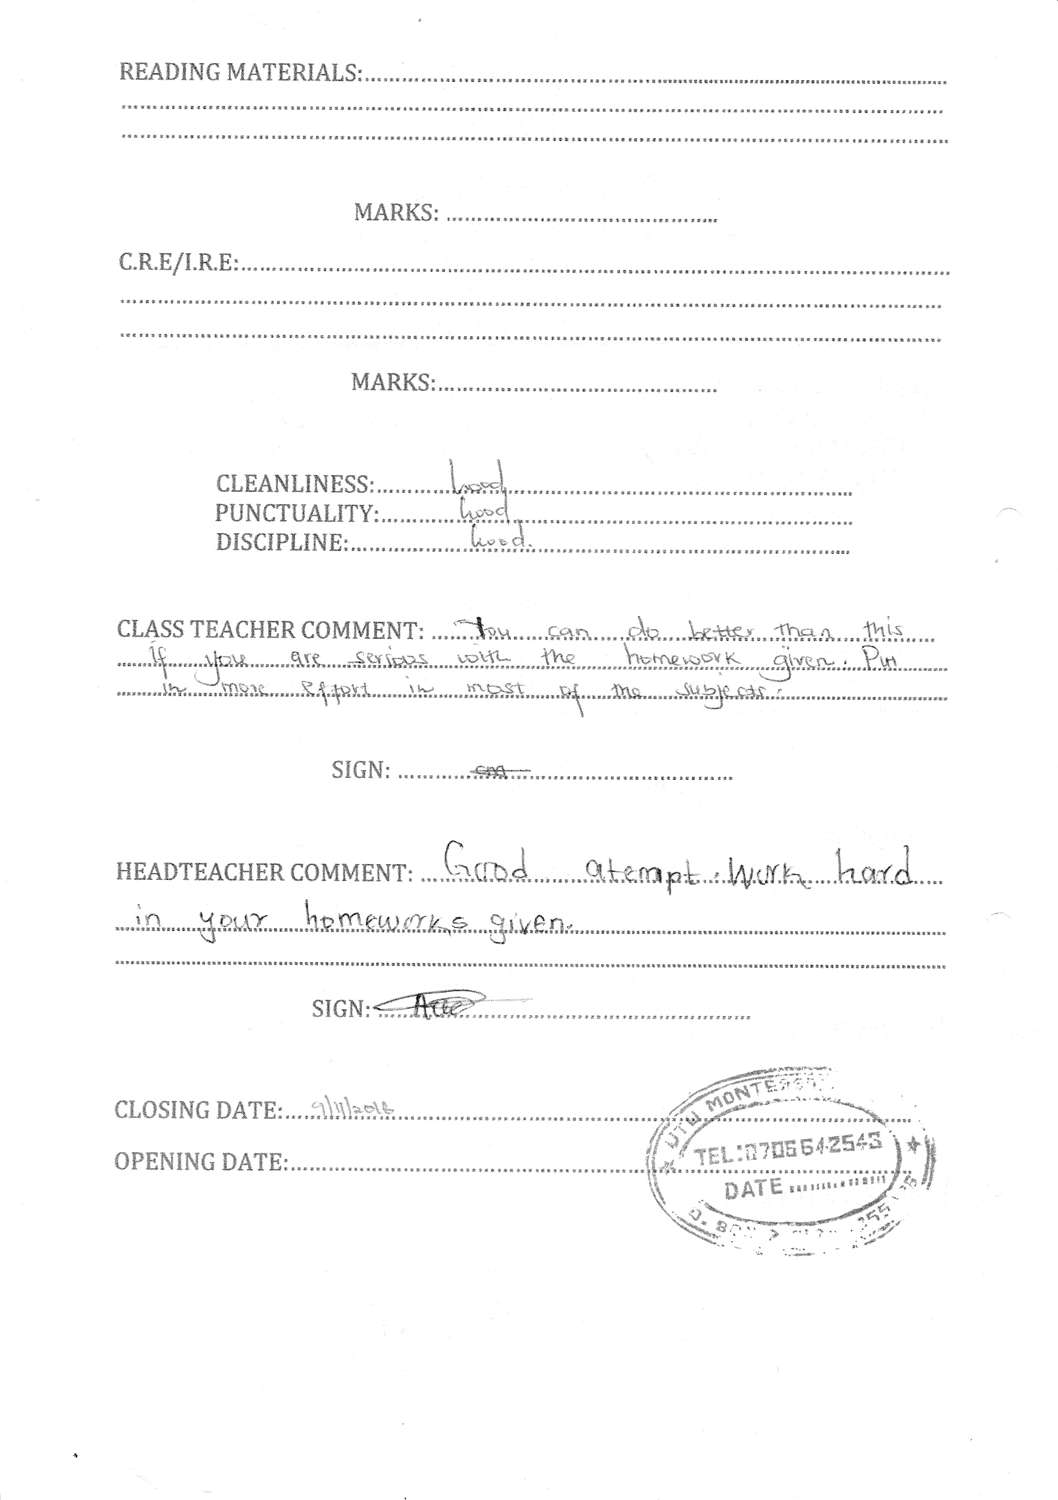 READING MATERIALS:
MARKS:
C.R.E/I.R.E:
MARKS:
CLEANLINESS: Good
PUNCTUALITY: Good
DISCIPLINE: Good.
CLASS TEACHER COMMENT: You can do better than this
If you are serious with the homework given. Put
in more effort in most of the subjects.
SIGN:
HEADTEACHER COMMENT: Good atempt. Work hard
in your homeworks given.
SIGN:
CLOSING DATE: 9/11/2018
OPENING DATE:
UTU MONTESSORI
TEL: 0706642543
DATE